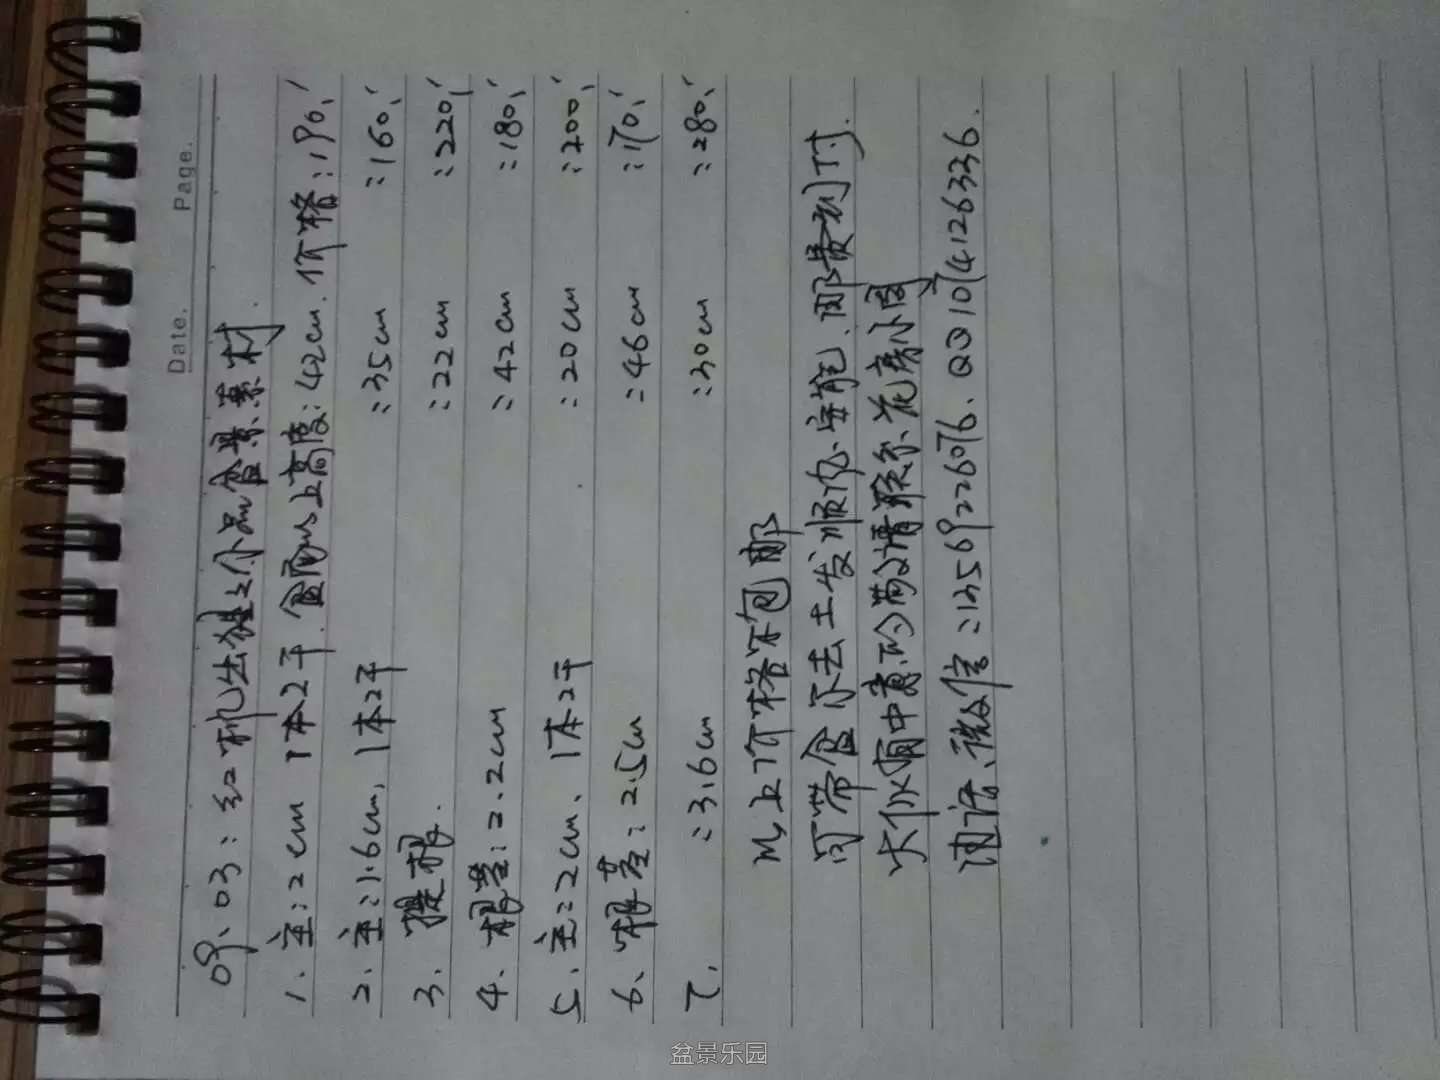 Date. Page.
09、03:红机出猩之小品盆景素材.
1. 主:2cm 1本2干.盆面以上高度:42cm.价格:190,
2. 主:1.6cm, 1本2干 =35cm =160,
3. 提根. =22cm =220,
4. 根茎:2.2cm =42cm =180,
5. 主=2cm、1本2干 =20cm =200,
6、根茎:2.5cm =46cm =170,
7. =3.6cm =30cm =280,
以上价格不包邮
可带盆不去土发顺办.安能.邮费到付.
大伙有中意的敬请联系花房小周
电话.微信=13569226076. QQ1074126336.
盆景乐园